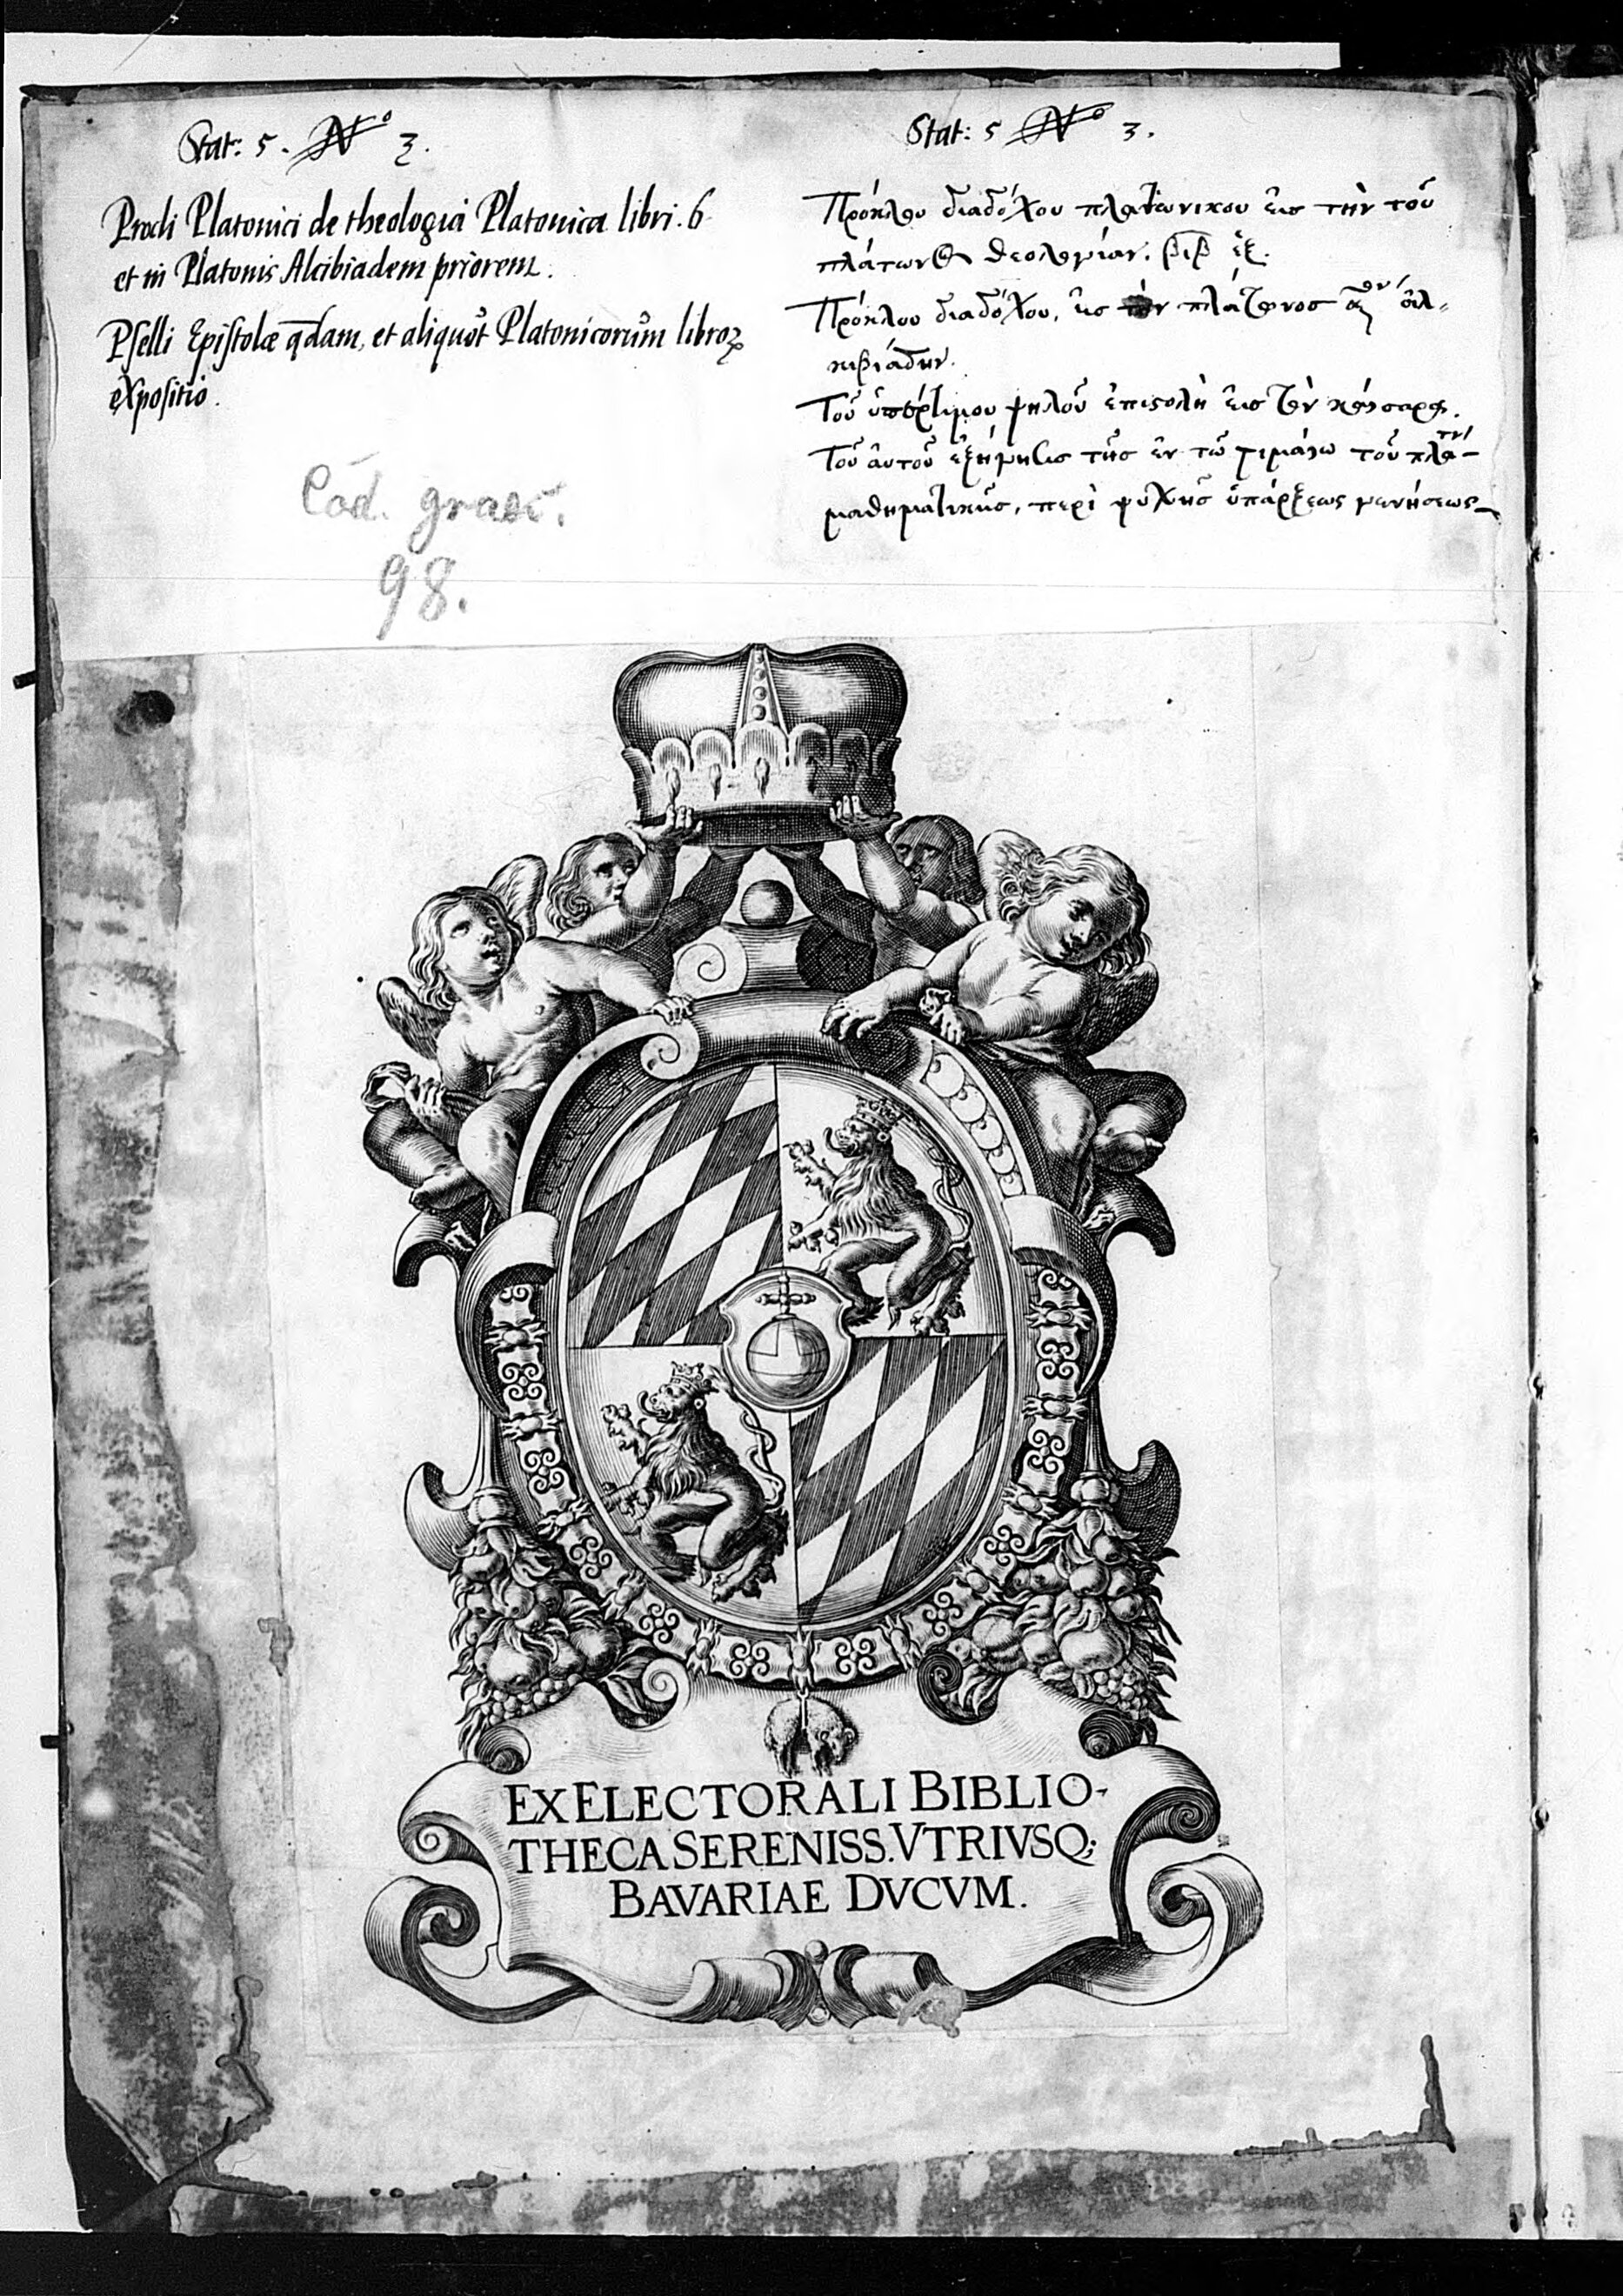 Stat: 5. No 3.
Procli Platonici de theologia Platonica libri. 6
et in Platonis Alcibiadem priorem.
Pselli Epistolæ qdam, et aliquot Platonicorum libroꝝ
expositio.
Cod. graec.
98.
Stat: 5 No 3.
Πρόκλου διαδόχου πλατωνικου εἰς τὴν τοῦ
πλάτωνος θεολογίαν. βιβ ἓξ.
Πρόκλου διαδόχου, εἰς τὸν πλάτωνος αον ἀλ-
κιβιάδην.
Τοῦ ὑπερτίμου ψηλοῦ ἐπιστολὴ εἰς τὸν
Τοῦ αὐτοῦ ἐξήγησις τῆς ἐν τῶ τιμαίω τοῦ
μαθηματικῆς, περὶ ψυχῆς ὑπάρξεως γενήσεως
EX ELECTORALI BIBLIO-
THECA SERENISS. VTRIVSQ;
BAVARIAE DVCVM.